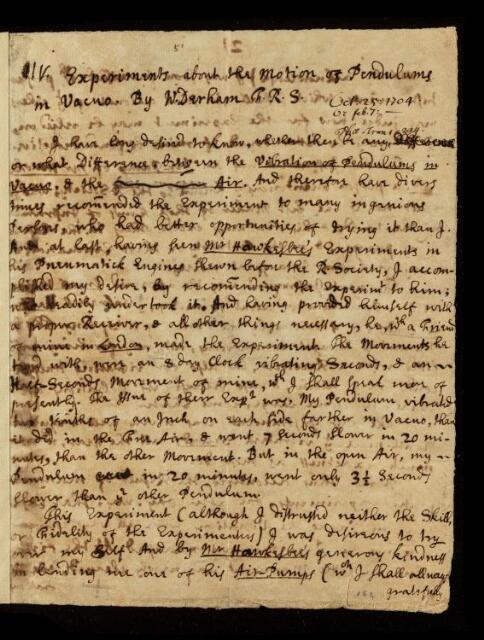 IV. Experiments about the Motion of Pendulums
in Vacuo. By W. Derham F. R. S.
Octr. 25 1704
or feb. 7.
I have long desired to know, whether there be any
or what Difference between the Vibration of Pendulums in
Vacuo, & the Air. And therefore have divers
times recomended the Experiment to many ingenious
persons, who had better opportunities of trying it than I.
And at last, having seen Mr Hawkesbees Experiments in
his Pneumatick Engines shewn before the R. Society, I accom-
plished my desire, by recomending the Experimt to him;
who readily undertook it. And having provided himself with
a proper Receiver, & all other things necessary, he, wth a Friend
of mine in London, made the Experiment. The Movements he
tryed with, were an 8 day Clock vibrating Seconds, & an
Half-Seconds Movement of mine, wch I shall speak more of
presently. The Issue of their Expt was, My Pendulum vibrated
two tenths of an Inch on each side farther in Vacuo, than
it did in the free Air, & went 7 seconds slower in 20 mi-
nutes, than the other Movement. But in the open Air, my
Pendulum in 20 minutes, went only 3½ Seconds
slower than ye other Pendulum.
This Experiment (although I distrusted neither the Skill,
or Fidelity of the Experimenters) I was desirous to try
over my Self. And by Mr Hawkesbees generous kindness
in lending me one of his Air-Pumps (wch I shall allways
gratefully